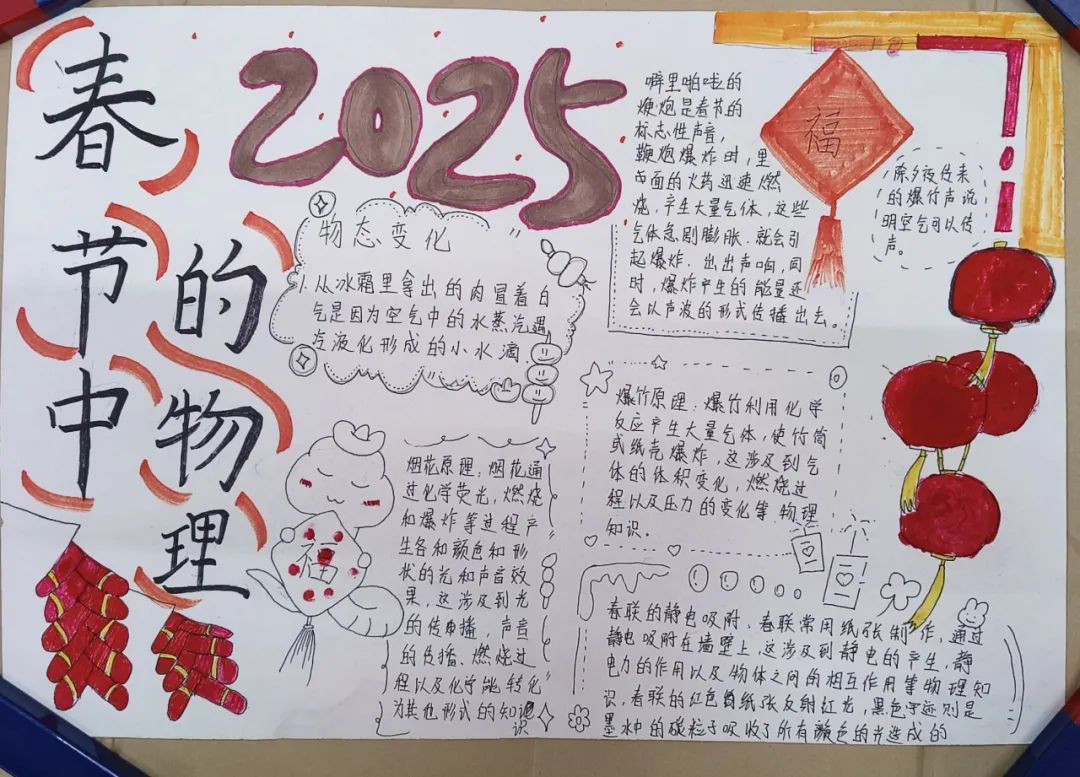 春节中的物理
2025
福
噼里啪啦的
鞭炮是春节的
标志性声音，
鞭炮爆炸时，里
面的火药迅速燃
烧，产生大量气体，这些
气体急剧膨胀．就会引
起爆炸．出出声响，同
时，爆炸产生的能量还
会以声波的形式传播出去。
除夕夜传来
的爆竹声说
明空气可以传
声。
物态变化
1.从冰霜里拿出的肉冒着白
气是因为空气中的水蒸汽遇
冷液化形成的小水滴
爆竹原理：爆竹利用化学
反应产生大量气体，使竹筒
或纸壳爆炸，这涉及到气
体的体积变化，燃烧过
程以及压力的变化等物理
知识。
烟花原理：烟花通
过化学荧光，燃烧
和爆炸等过程产
生各和颜色和形
状的光和声音效
果，这涉及到光
的传播，声音
的传播、燃烧过
程以及化学能转化
为其他形式的知识
福
春联的静电吸附．春联常用纸张制作，通过
静电吸附在墙壁上，这涉及到静电的产生，静
电力的作用以及物体之间的相互作用等物理知
识，春联的红色纸张反射红光，黑色字迹则是
墨水中的碳粒子吸收了所有颜色的光造成的